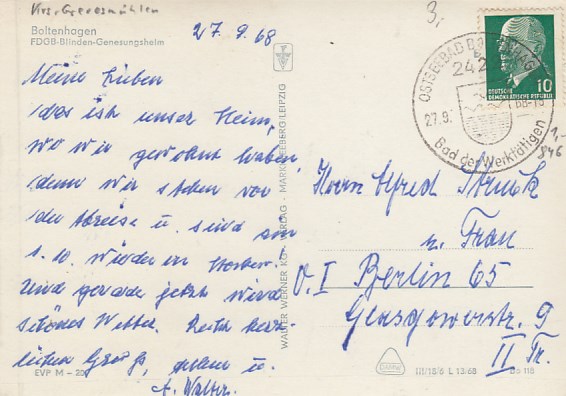 Krs. Grevesmühlen
Boltenhagen
FDGB-Blinden-Genesungsheim
27.9.68
Meine Lieben
das ist unser Heim,
wo wir gewohnt haben,
denn wir stehen vor
der Abreise u. sind am
1. 10. wieder
Und gerade jetzt wird
schönes Wetter. Recht herz-
lichen Gruß, u.
Walter.
EVP M – 20
WALTER WERNER KG VERLAG · MARKKLEEBERG/LEIPZIG
3,
OSTSEEBAD
242
27.9. 68-18
Bad der Werktätigen
DEUTSCHE
DEMOKRATISCHE REPUBLIK 10
1,-
846
Herrn Alfred
u. Frau
Berlin 65
Glasgowerstr. 9
II Tr.
III/18/6 L 13/68 Bo 118